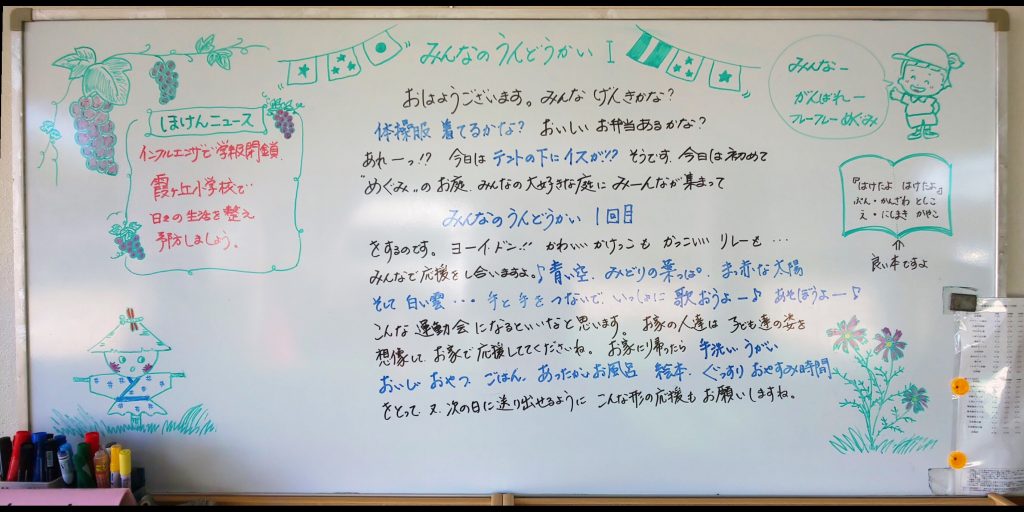 みんなのうんどうかい I
おはようございます。みんな げんきかな?
体操服 着てるかな? おいしい お弁当あるかな?
あれーっ!? 今日は テントの下に イスが!!? そうです。今日は初めて
"めぐみ"の お庭、みんなの大好きな庭に みーんなが集まって
みんなのうんどうかい 1回目
をするのです。ヨーイ・ドン!! かわいい かけっこも かっこいい リレーも …
みんなで応援をし合いますよ。♪青い空、みどりの葉っぱ、まっ赤な太陽
そして 白い雲… 手と手をつないで、いっしょに 歌おうよー♪ あそぼうよー♪
こんな 運動会になるといいなと思います。お家の人達は 子ども達の姿を
想像して お家で応援してくださいね。お家に帰ったら 手洗い うがい
おいしい おやつ、ごはん、あったかいお風呂 絵本、ぐっすり おやすみ時間
をとって 又、次の日に送り出せるように こんな形の応援も お願いしますね。
ほけんニュース
インフルエンザで学級閉鎖
霞ヶ丘小学校で
日々の生活を整え
予防しましょう。
みんなー
がんばれー
フレーフレー めぐみ
『はけたよ はけたよ』
ぶん・かんざわ としこ
え・にしまき かやこ
良い本ですよ